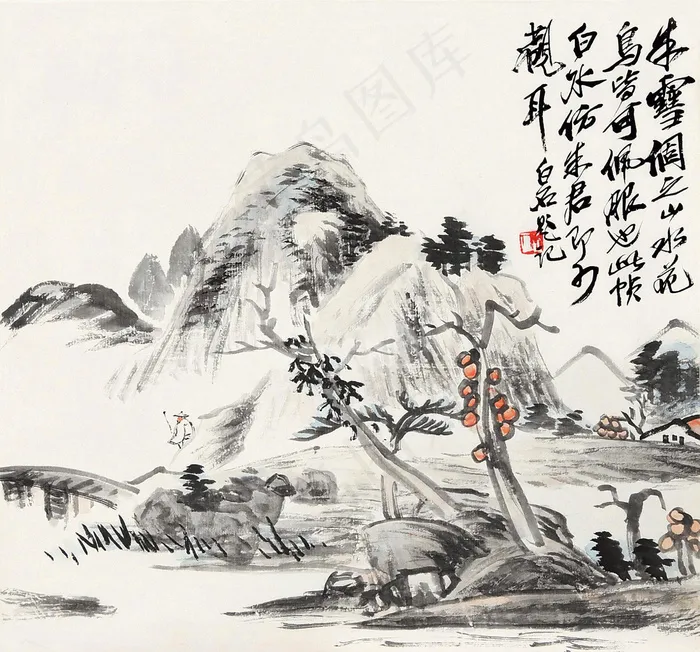 朱雪個之山水花
鳥皆可佩服也此幀
白仿朱君即可
觀耳 白石題記
鸟图库